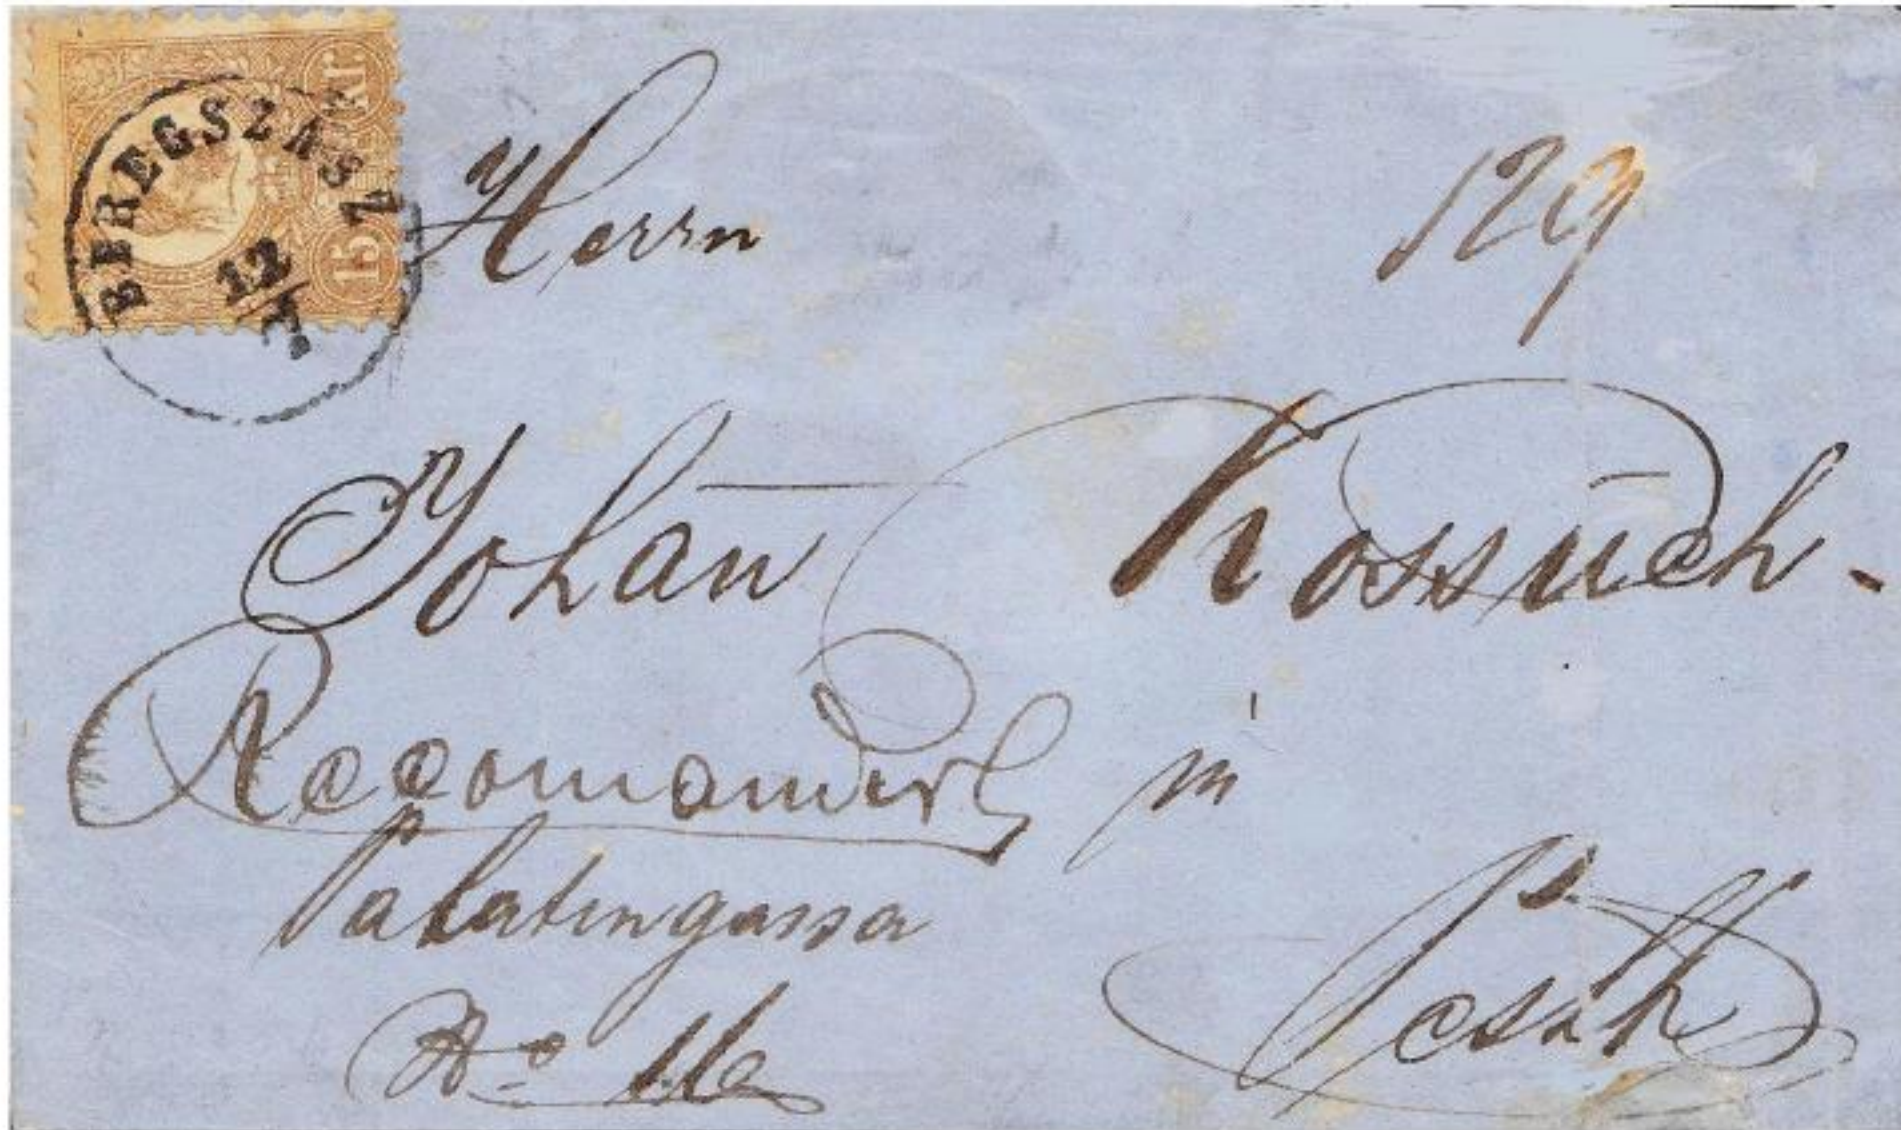 15 kr.
BEREGSZÁSZ
12
Herrn
129
Johan̄ Kossuch.
Recomandirt in
Palatingasse
Pesth